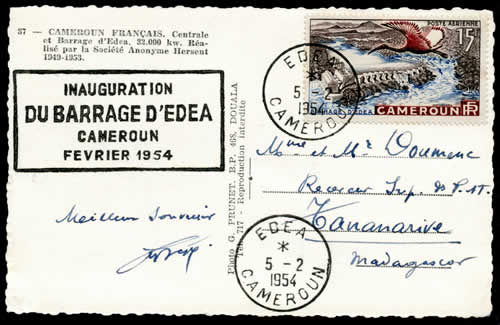 37 — CAMEROUN FRANÇAIS. Centrale
et Barrage d'Edea. 32.000 kw. Réa-
lisé par la Société Anonyme Hersent
1949-1953.
INAUGURATION
DU BARRAGE D'EDEA
CAMEROUN
FEVRIER 1954
Meilleur Souvenir
Photo G. PRUNET. B.P. 468, DOUALA
Tél. 717 - Reproduction interdite
POSTE AÉRIENNE
15F
CAMEROUN RF
EDEA
*
5 - 2
1954
CAMEROUN
Mme et Mr Doumenc
Receveur Sup. des P.T.
Tananarive
Madagascar
EDEA
*
5 - 2
1954
CAMEROUN